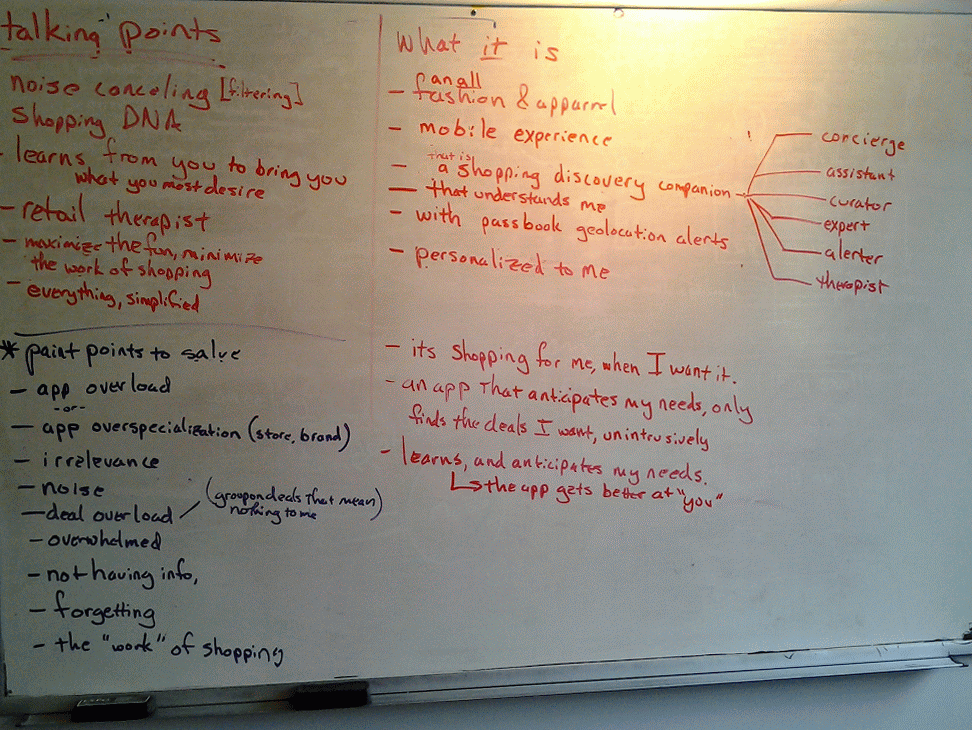 talking points
noise canceling [filtering]
shopping DNA
- learns from you to bring you
what you most desire
- retail therapist
- maximize the fun, minimize
the work of shopping
- everything, simplified
* paint points to salve
- app overload
-or-
- app overspecialization (store, brand)
- irrelevance
- noise
- deal overload
(groupon deals that mean
nothing to me)
- overwhelmed
- not having info,
- forgetting
- the "work" of shopping
What it is
an all
- fashion & apparrel
- mobile experience
that is
- a shopping discovery companion
- that understands me
- with passbook geolocation alerts
- personalized to me
concierge
assistant
curator
expert
alerter
therapist
- its shopping for me, when I want it.
- an app that anticipates my needs, only
finds the deals I want, unintrusively
- learns, and anticipates my needs.
↳ the app gets better at "you"